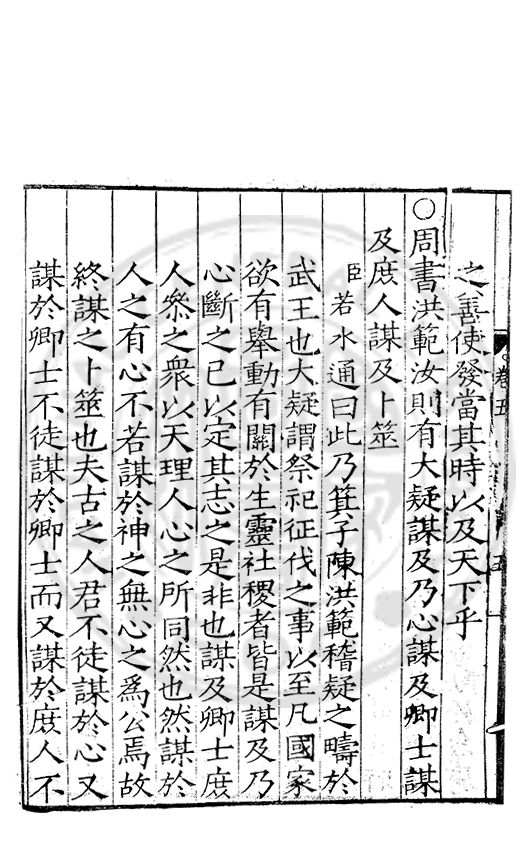 之善使發當其時以及天下乎
○周書洪範汝則有大疑謀及乃心謀及卿士謀
及庻人謀及卜筮
臣若水通曰此乃箕子陳洪範稽疑之疇於
武王也大疑謂祭祀征伐之事以至凡國家
欲有舉動有關於生靈社稷者皆是謀及乃
心斷之已以定其志之是非也謀及卿士庻
人叅之衆以天理人心之所同然也然謀於
人之有心不若謀於神之無心之爲公焉故
終謀之卜筮也夫古之人君不徒謀於心又
謀於卿士不徒謀於卿士而又謀於庻人不
卷五
五